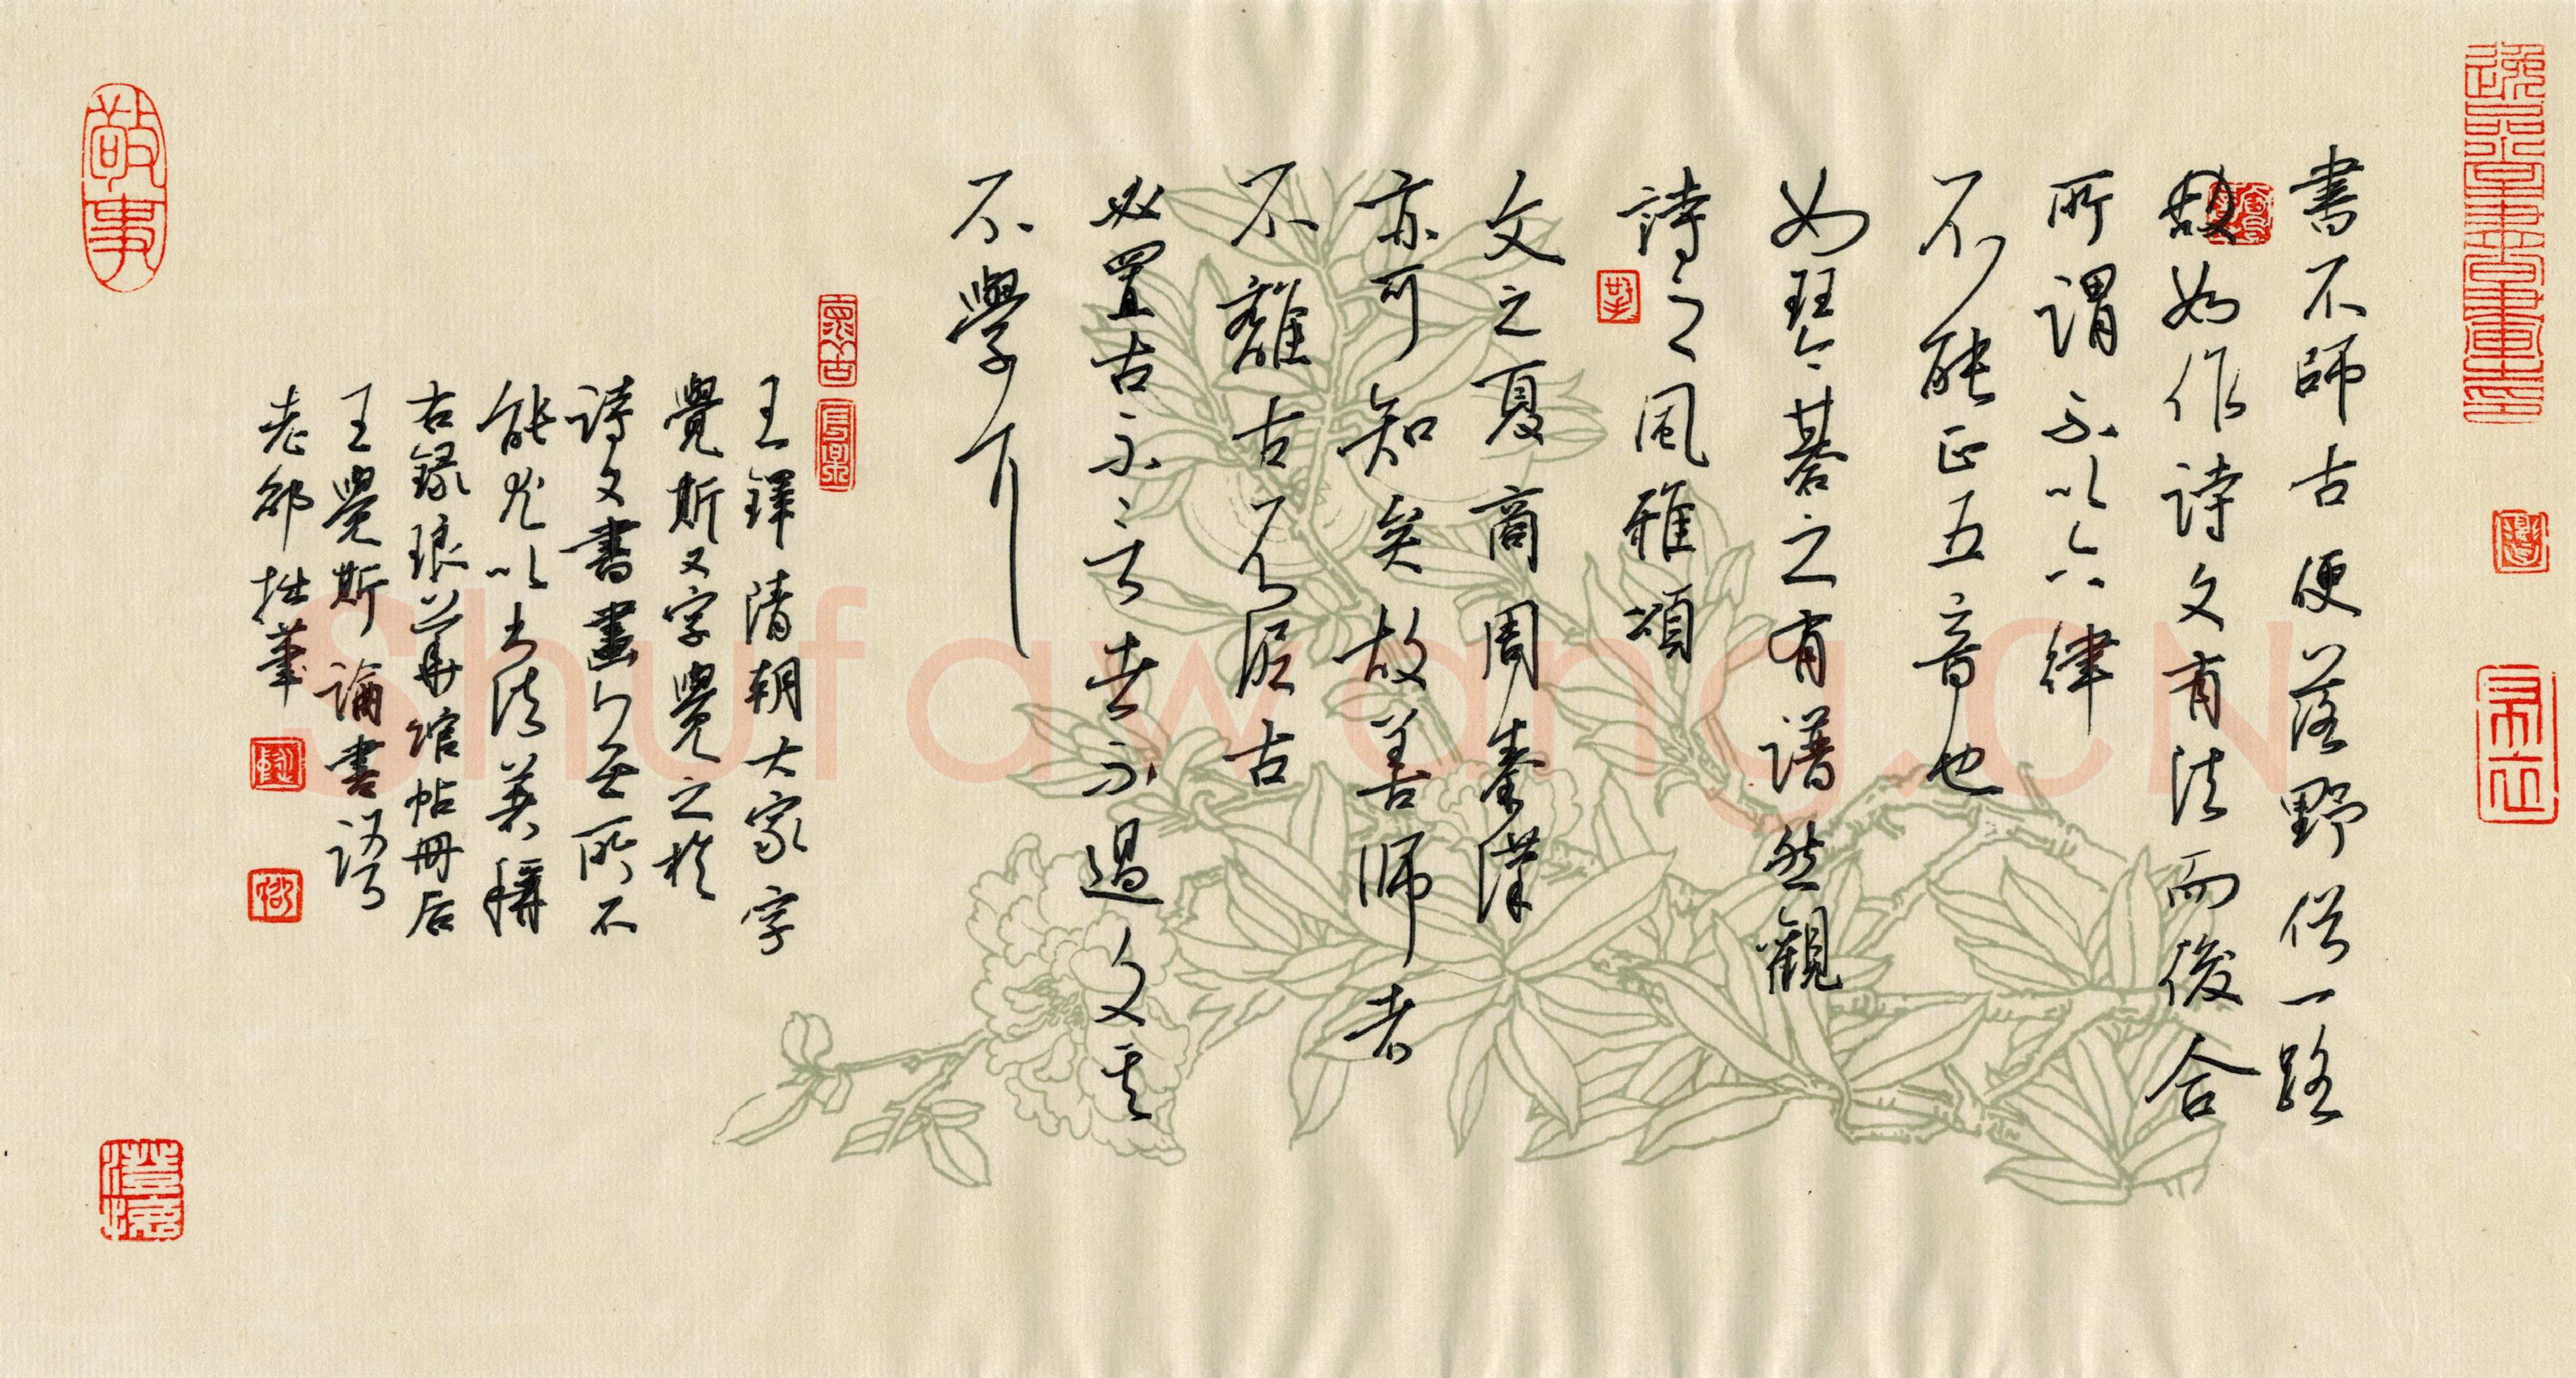 書不師古便落野俗一路
故如作詩文有法而後合
所謂不以六律
不能正五音也
如琴棊之有譜然觀
詩之風雅頌
文之夏商周秦漢
亦可知矣故善師者
不離古不泥古
必置古不言者不過文其
不學耳
王鐸清朝大家字
覺斯又字覺之於
詩文書畫無所不
能尤以書法著稱
右錄琅華館帖冊后
王覺斯論書語
老邵拙筆
敬事
Shufawang.CN